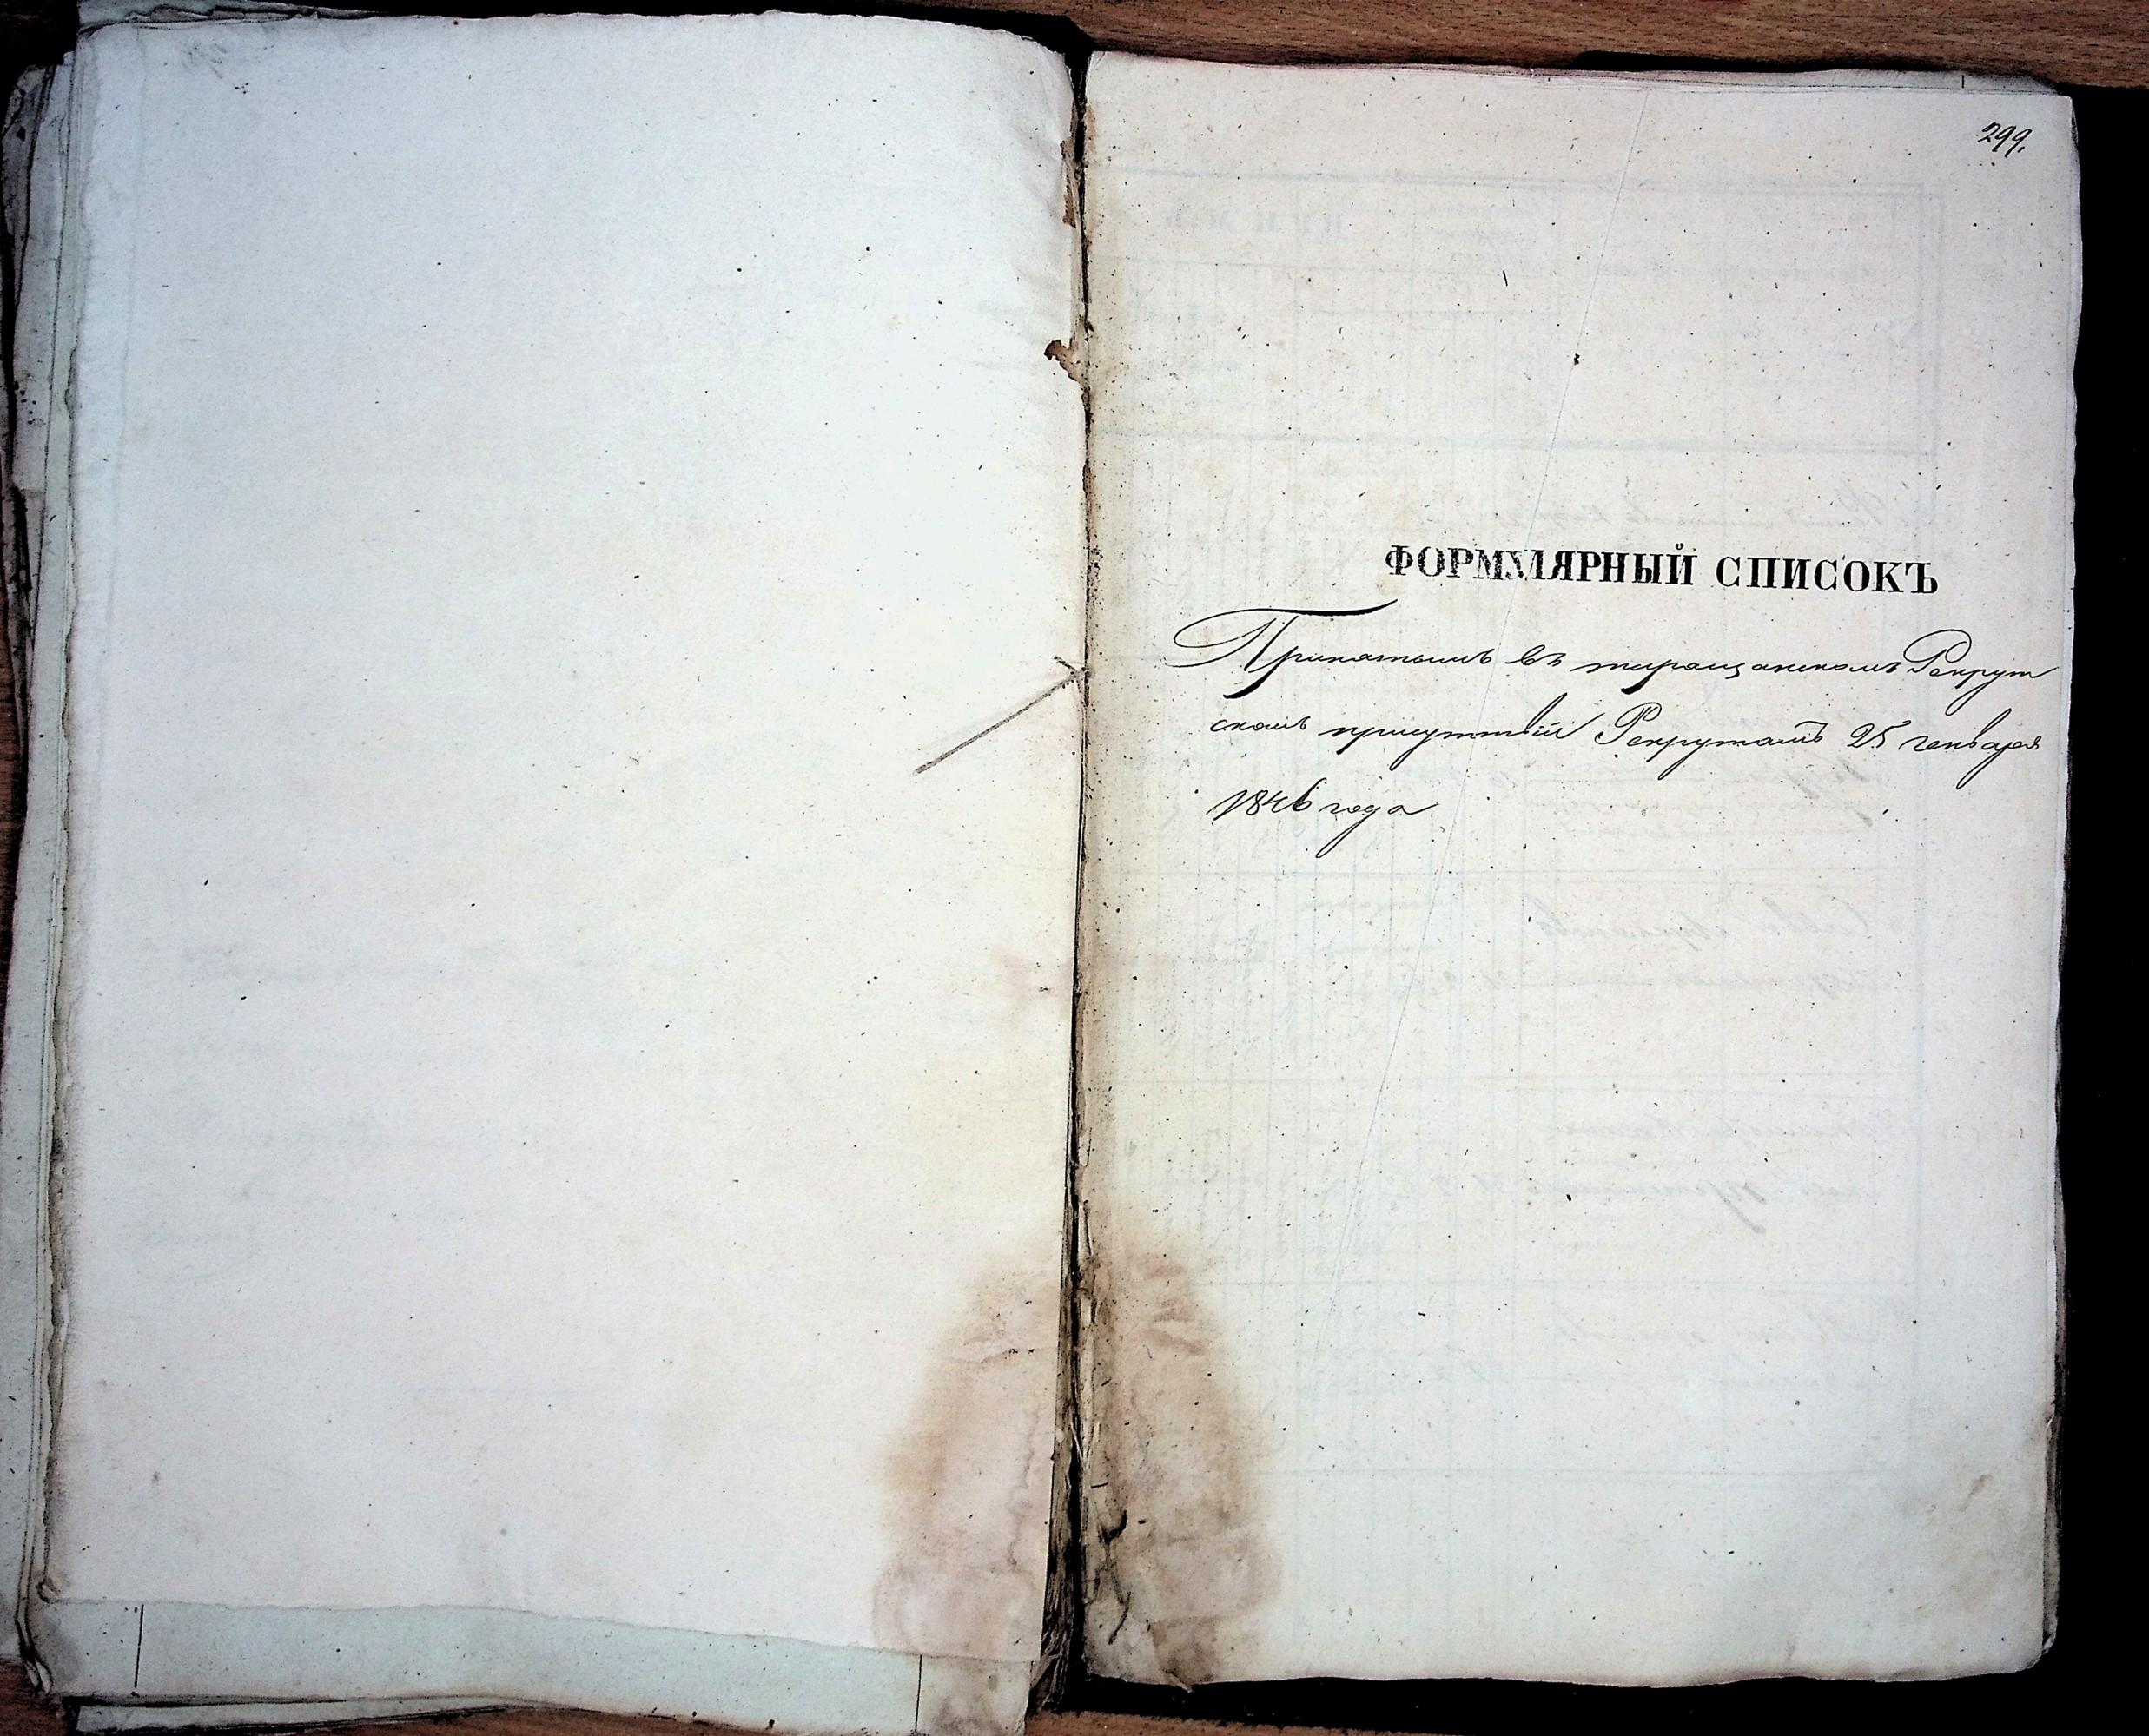 299.
ФОРМУЛЯРНЫЙ СПИСОКЪ
Принатымъ въ таращанскомъ Рекрут
скомъ присутствіи Рекрутамъ 25 генваря
1846 года